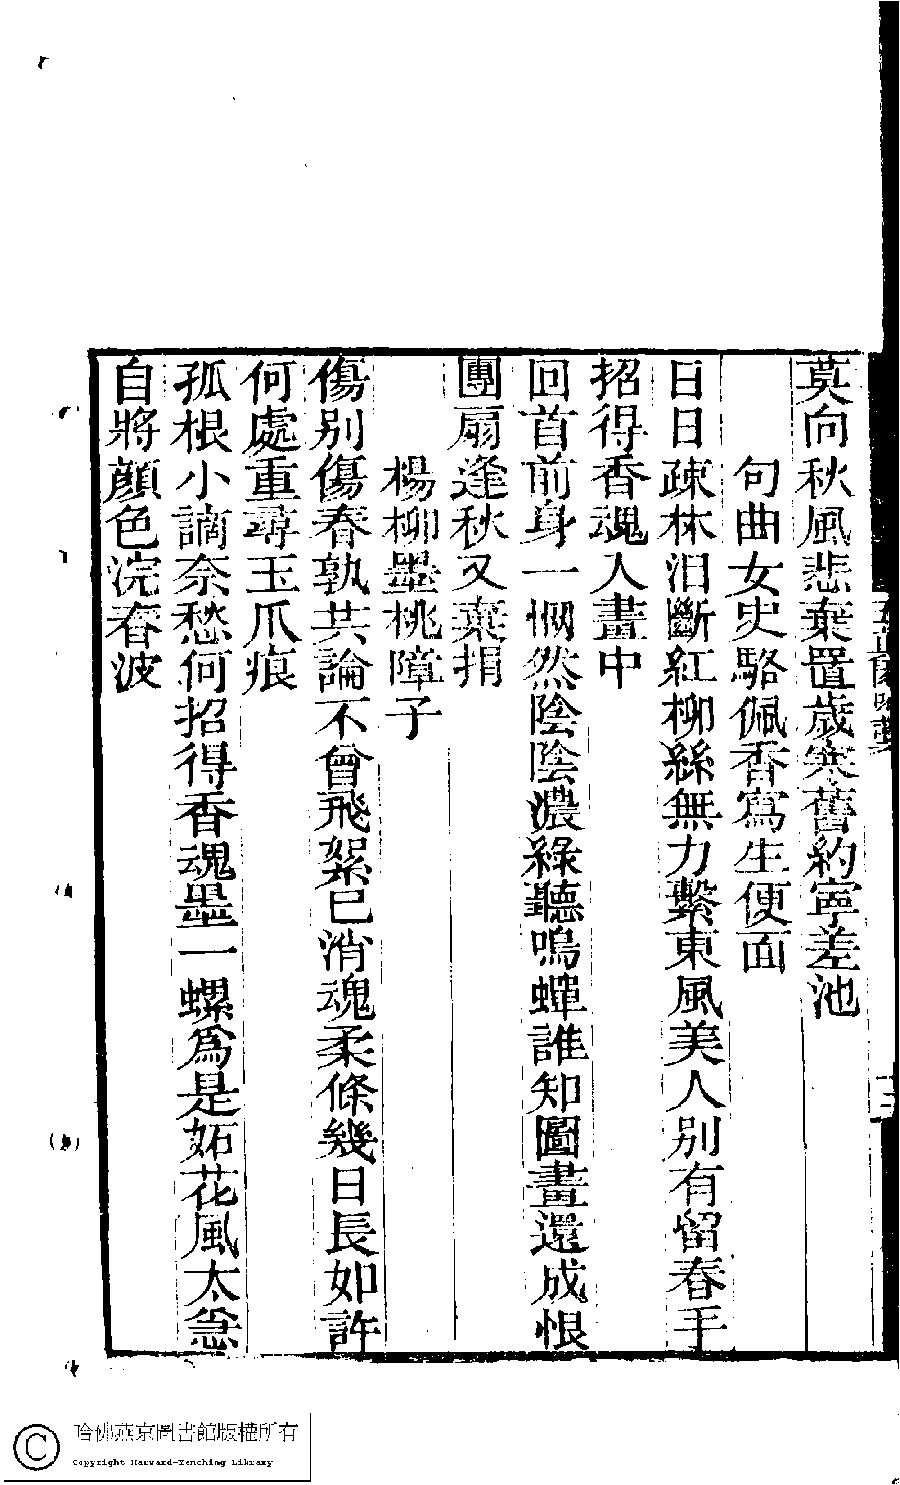 莫向秋風悲棄置歲寒舊約寧差池
句曲女史駱佩香寫生便面
日日疎林汨斷紅柳絲無力繫東風美人別有留春手
招得香魂入畫中
回首前身一惘然陰陰濃綠聽鳴蟬誰知圖畫還成恨
團扇逢秋又棄捐
楊柳墨桃障子
傷別傷春孰共論不曾飛絮已消魂柔條幾日長如許
何處重尋玉爪痕
孤根小謫奈愁何招得香魂墨一螺爲是妬花風太急
自將顏色浣春波
哈佛燕京圖書館版權所有
Copyright Harvard-Yenching Library